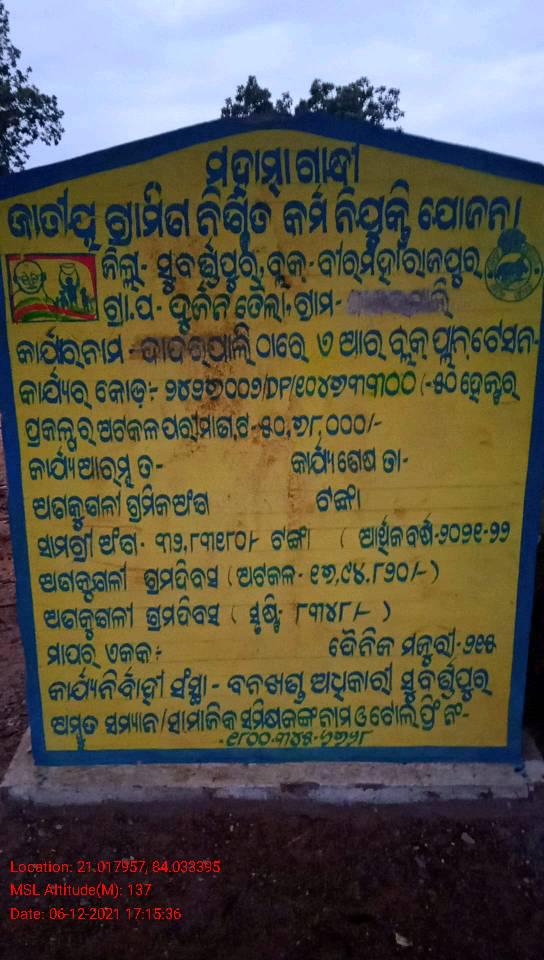 ମହାତ୍ମା ଗାନ୍ଧୀ
ଜାତୀୟ ଗ୍ରାମିଣ ନିଶ୍ଚିତ କର୍ମ ନିଯୁକ୍ତି ଯୋଜନା
ଜିଲ୍ଲା- ସୁବର୍ଣ୍ଣପୁର, ବ୍ଲକ- ବୀରମହାରାଜପୁର
ଗ୍ରା.ପ- ଦୁର୍ଜନ ତୈଲା, ଗ୍ରାମ-
କାର୍ଯ୍ୟର ନାମ - ଠାରେ ଏ ଆର ବ୍ଲକ୍ ପ୍ଲାନ୍ଟେସନ-
କାର୍ଯ୍ୟର କୋଡ଼:- /-୫୦ ହେକ୍ଟର
ପ୍ରକଳ୍ପର ଅଟକଳ ପରୀମାଣ,ଟ-୫୦,୬୮,୦୦୦/-
କାର୍ଯ୍ୟ ଆରମ୍ଭ ତା- କାର୍ଯ୍ୟ ଶେଷ ତା-
ଅଣକୁଶଳୀ ଶ୍ରମିକ ଅଂଶ ଟଙ୍କା
ସାମଗ୍ରୀ ଅଂଶ- ୩୨,୮୩୧୮୦/- ଟଙ୍କା ( ଆର୍ଥିକ ବର୍ଷ-୨୦୨୧-୨୨
ଅଣକୁଶଳୀ ଶ୍ରମଦିବସ (ଅଟକଳ- ୧୭,୯୪,୮୨୦/-)
ଅଣକୁଶଳୀ ଶ୍ରମଦିବସ ( ସୃଷ୍ଟି ୮୩୪୮/- )
ମାପର ଏକକ:- ଦୈନିକ ମଜୁରୀ-୨୧୫
କାର୍ଯ୍ୟନିର୍ବାହୀ ସଂସ୍ଥା - ବନଖଣ୍ଡ ଅଧିକାରୀ ସୁବର୍ଣ୍ଣପୁର
ଅମୃତ ସମ୍ମାନ/ସାମାଜିକ ସମିକ୍ଷକଙ୍କ ନାମ ଓ ଟୋଲ୍ ଫ୍ରି ନଂ-
-୧୮୦୦-୩୪୫-୬୭୬୮
Location: 21.017957, 84.033395
MSL Altitude(M): 137
Date: 06-12-2021 17:15:36